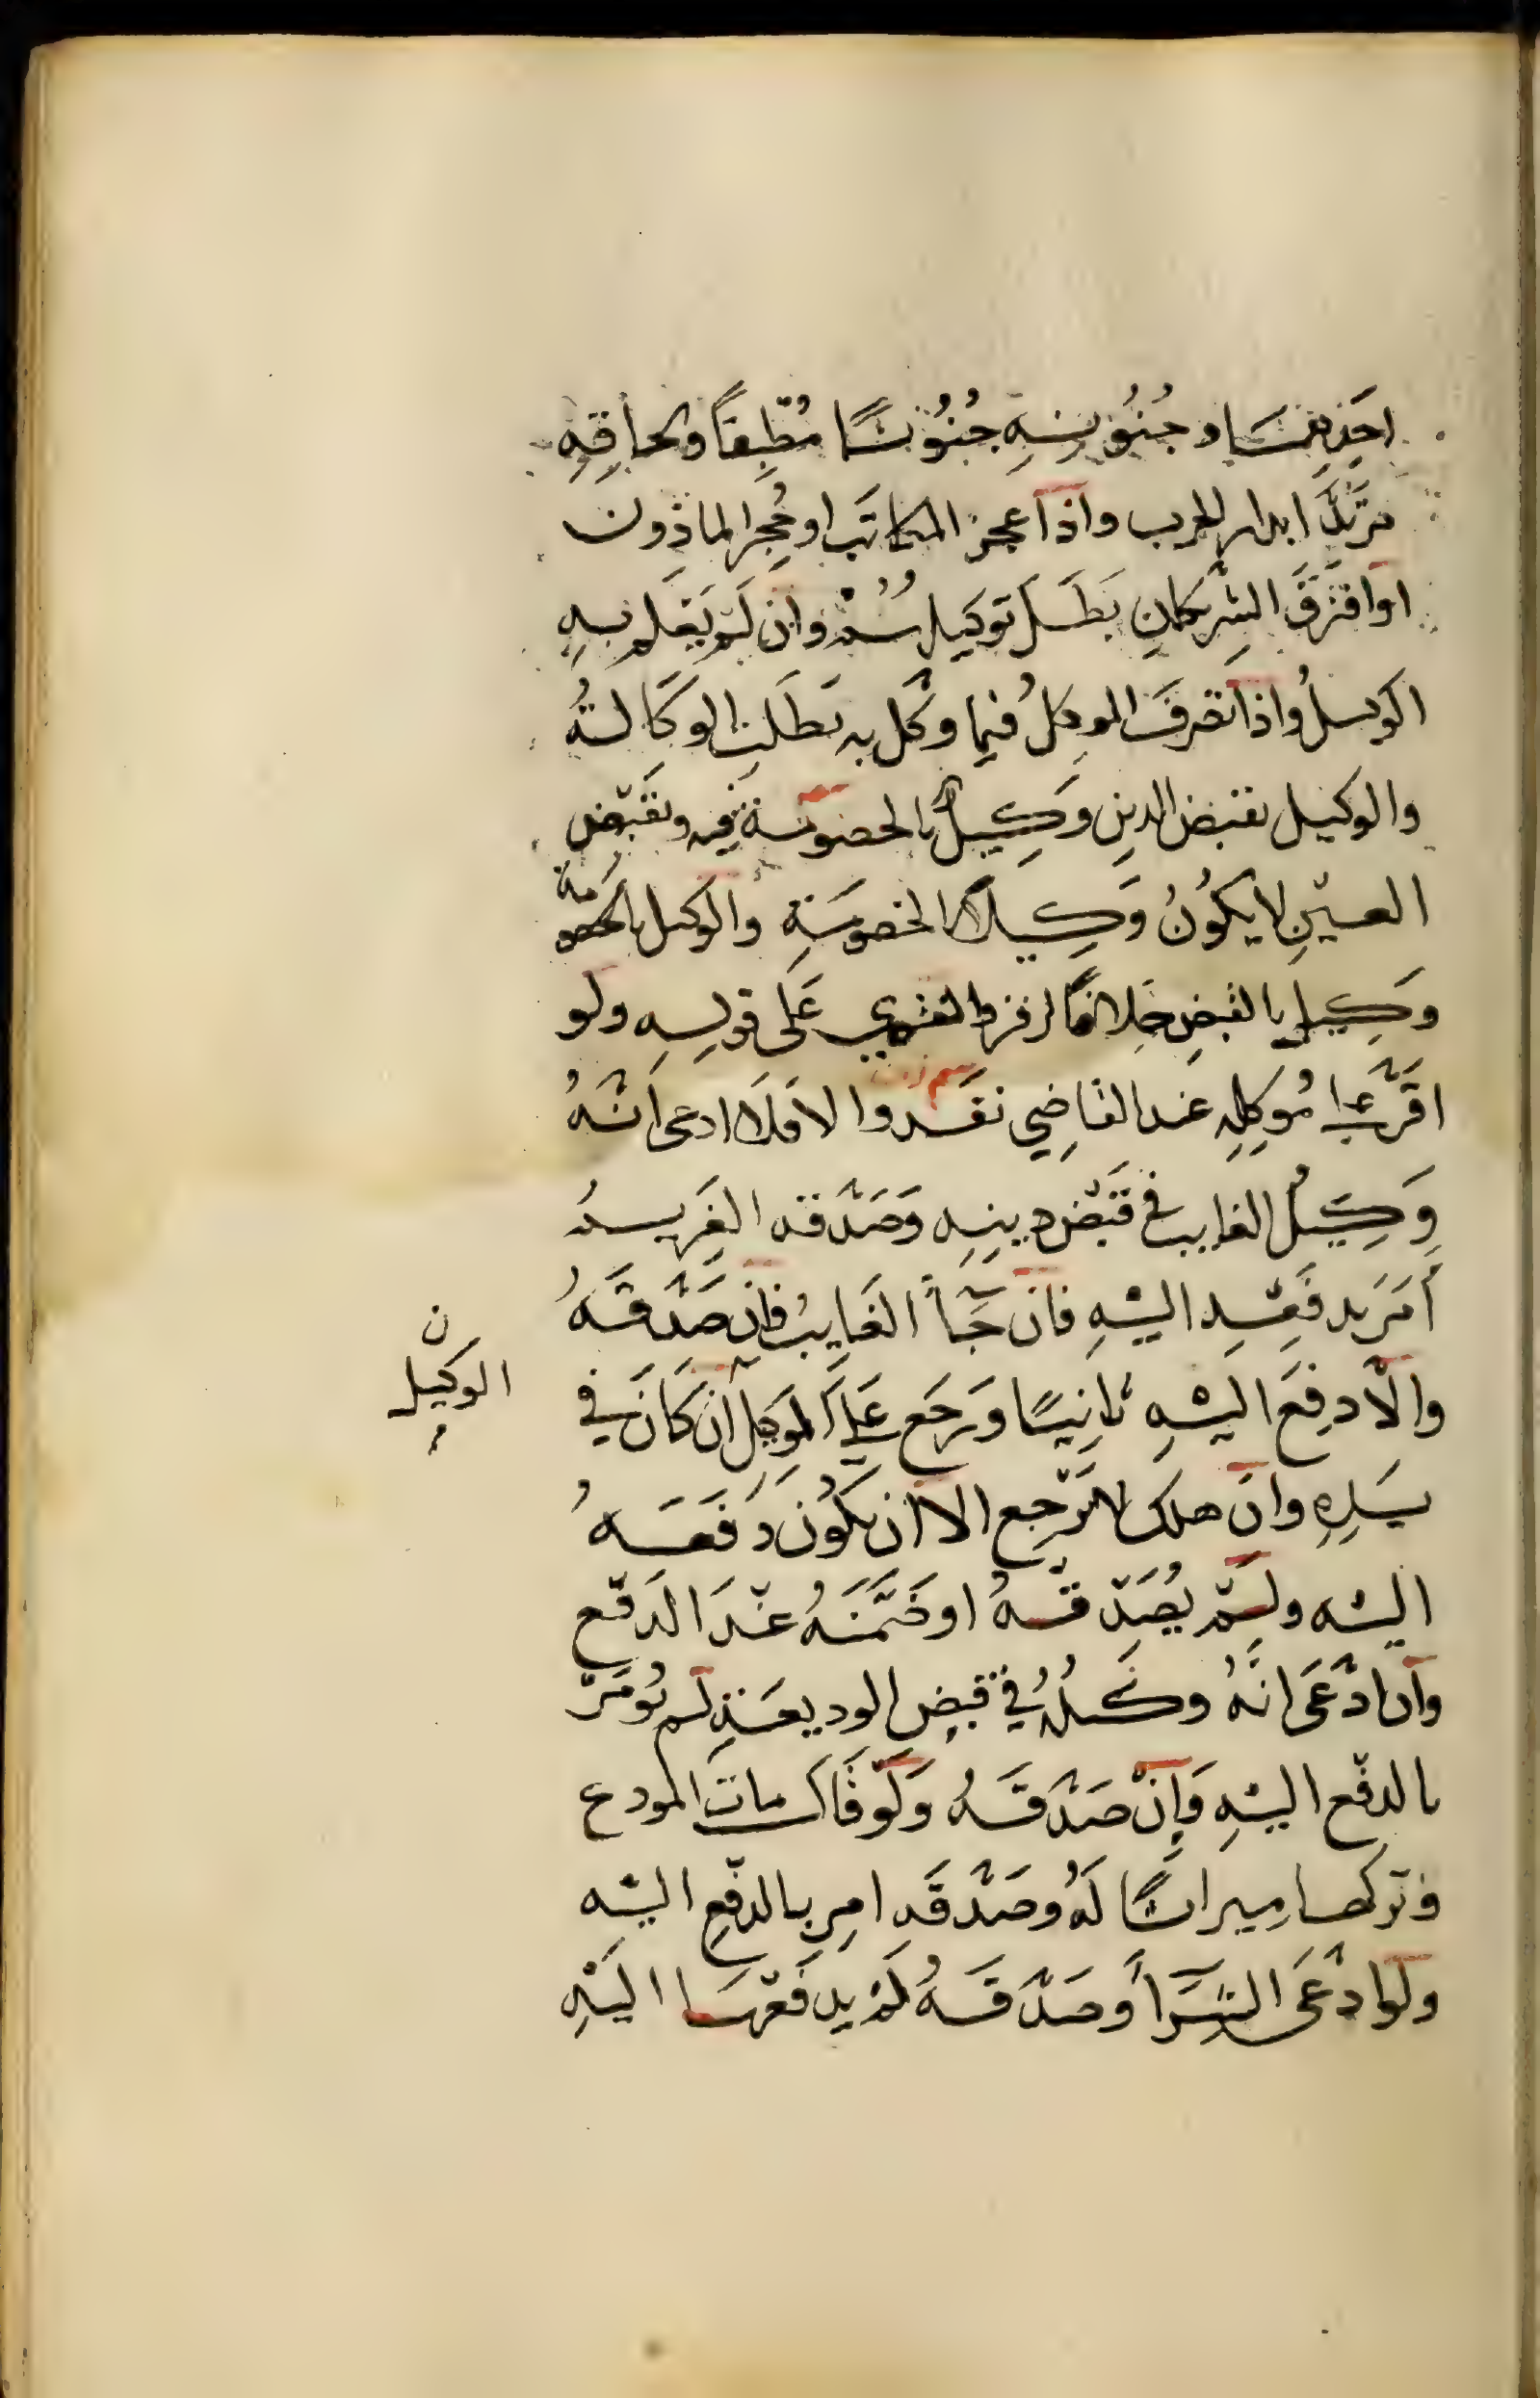 احدهما وجنونه جنونا مطبقا ولحاقه
مرتدا بدار الحرب واذا عجز المكاتب او حجر الماذون
او افترق الشريكان بطل توكيلهم وان لم يعلم به
الوكيل واذا تصرف الموكل فيما وكل به بطلت الوكالة
والوكيل بقبض الدين وكيل بالخصومة فيه وبقبض
العين لا يكون وكيلا بالخصومة والوكيل بالخصومة
وكيل بالقبض خلافا لزفر والفتوى على قوله ولو
اقر على موكله عند القاضي نفذ والا فلا ادعى انه
وكيل الغايب في قبض دينه وصدقه الغريم
امر بدفعه اليه فان جا الغايب فان صدقه
والا دفع اليه ثانيا ورجع على الموكل ان كان في
يده وان هلك لا يرجع الا ان يكون دفعه
اليه ولم يصدقه او ضمنه عند الدفع
وان ادعى انه وكله في قبض الوديعة لم يومر
بالدفع اليه وان صدقه ولو قال مات المودع
وتركها ميراثا له وصدقه امر بالدفع اليه
ولو ادعى الشرا وصدقه لم يدفعها اليه
ن
الوكيل